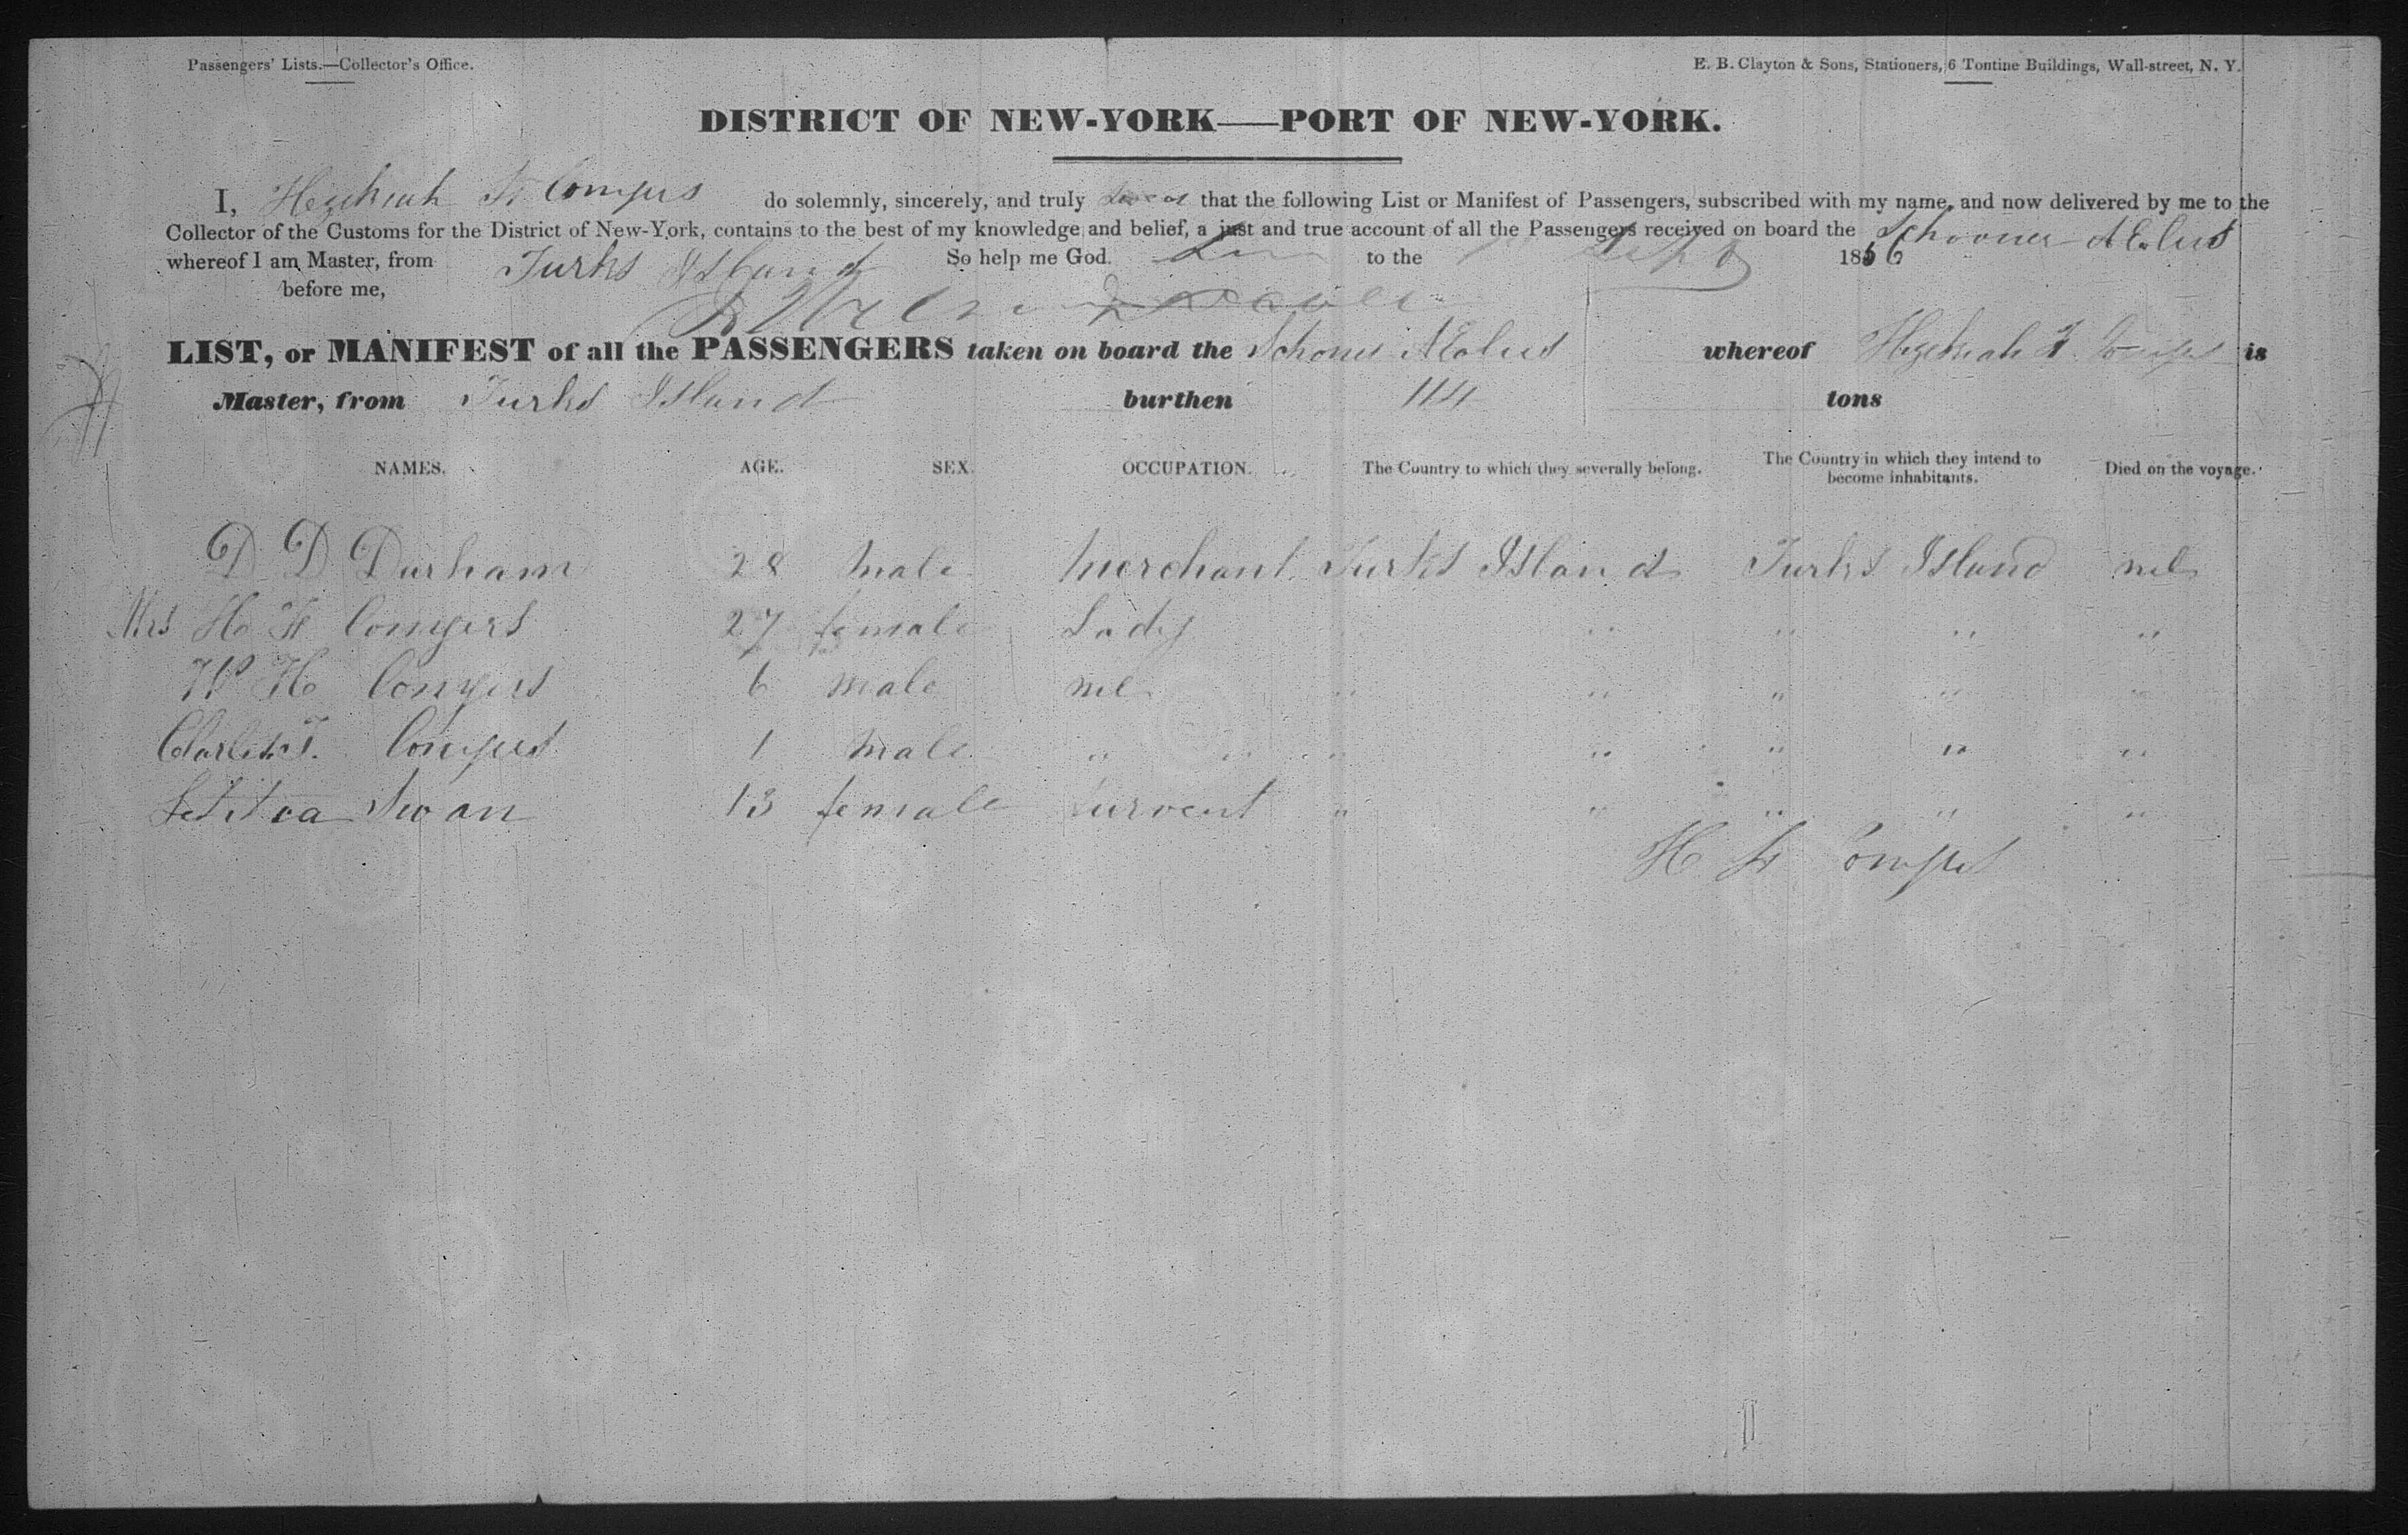 Passengers' Lists.—Collector's Office.
E. B. Clayton & Sons, Stationers, 6 Tontine Buildings, Wall-street, N. Y.
DISTRICT OF NEW-YORK—PORT OF NEW-YORK.
I, Hezekiah F Conyers do solemnly, sincerely, and truly swear that the following List or Manifest of Passengers, subscribed with my name, and now delivered by me to the
Collector of the Customs for the District of New-York, contains to the best of my knowledge and belief, a just and true account of all the Passengers received on board the Schooner AEolus
whereof I am Master, from Turks Island So help me God. to the 1856
before me,
LIST, or MANIFEST of all the PASSENGERS taken on board the Schoner AEolus whereof Hezekiah F. Conyers is
Master, from Turks Island burthen 114 tons
NAMES. AGE. SEX. OCCUPATION. The Country to which they severally belong. The Country in which they intend to become inhabitants. Died on the voyage.
D D Durham 28 male merchant Turks Island Turks Island nil
Mrs H F Conyers 27 female Lady " " " "
W H Conyers 6 male nil " " " " "
T. Conyers 1 male " " " " " " "
Letitca Swan 13 female survent " " " " "
H F Conyers